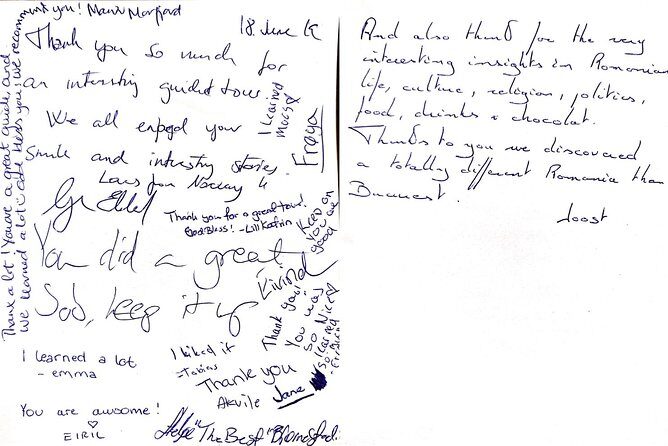 18. June 19
Thank you so much for
an interesting guided tour.
We all enjoyed your
smile and interesting stories.
I learned
much
Frøya
Thank you for a great tour!
God Bless! - Lill Katrin
Keep on
you are
good
You did a great
Job, keep it up
Eivind
Thank you!
You was
so Nice
I learned a lot
- emma
I liked it
- Tobias
Thank you
Akvile
Jane
You are awsome!
EIRIL
"The Best"
Thank a lot! You are a great guide, and
we learned a lot
you! we recommend you!
And also thank for the very
interesting insights in Romanian
life, culture, religion, politics,
food, drinks & chocolat.
Thanks to you we discovered
a totally different Romania than
Bucarest.
Joost